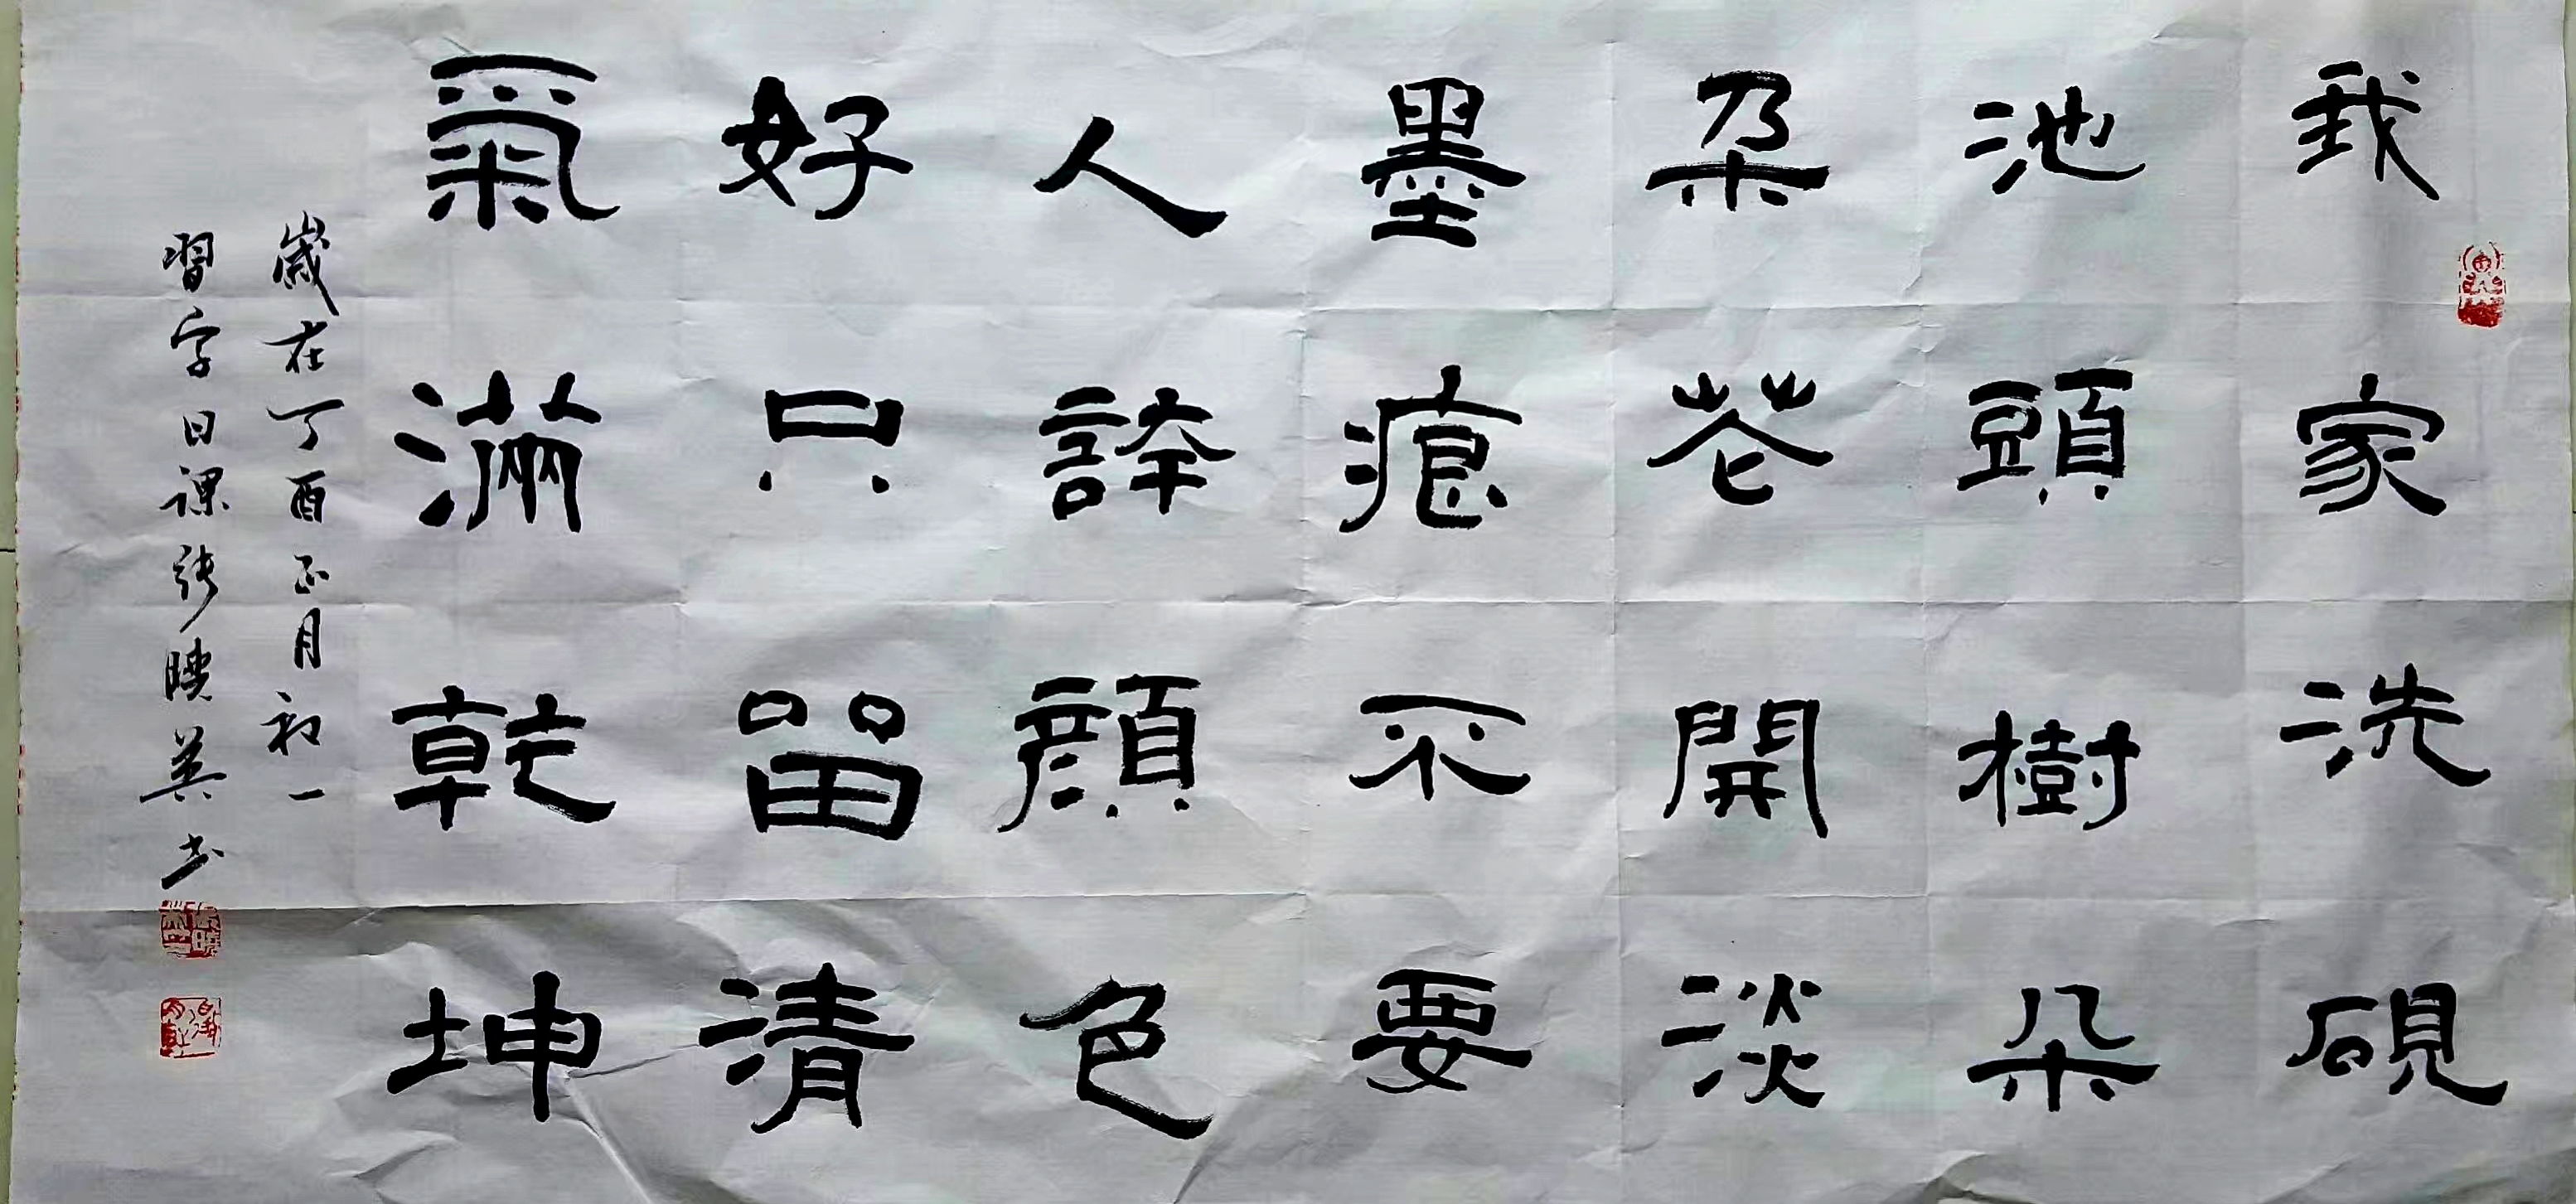 我家洗硯
池頭樹朵
朶花開淡
墨痕不要
人誇顏色
好只留清
氣滿乾坤
歲在丁酉正月初一
習字日課張曉英書